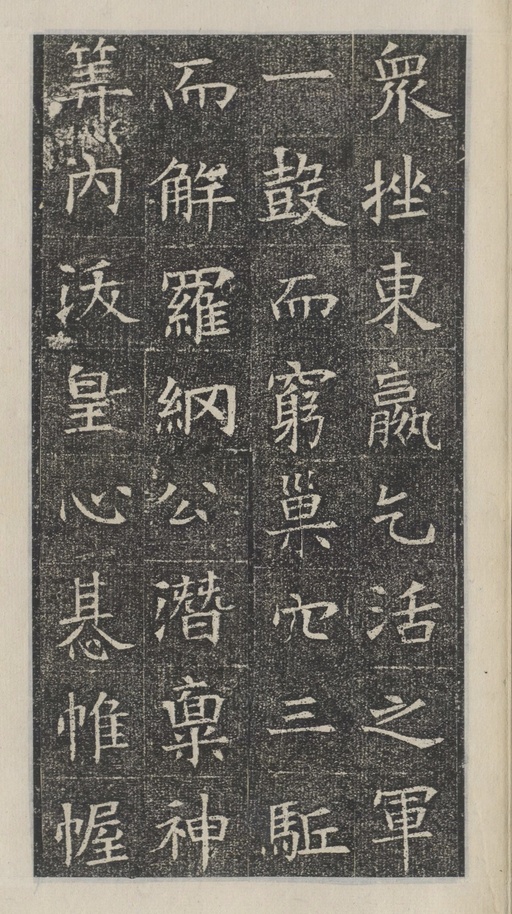 衆挫東嬴乞活之軍
一鼓而窮巢穴三駈
而解羅網公潛稟神
筭内沃皇心惎帷幄